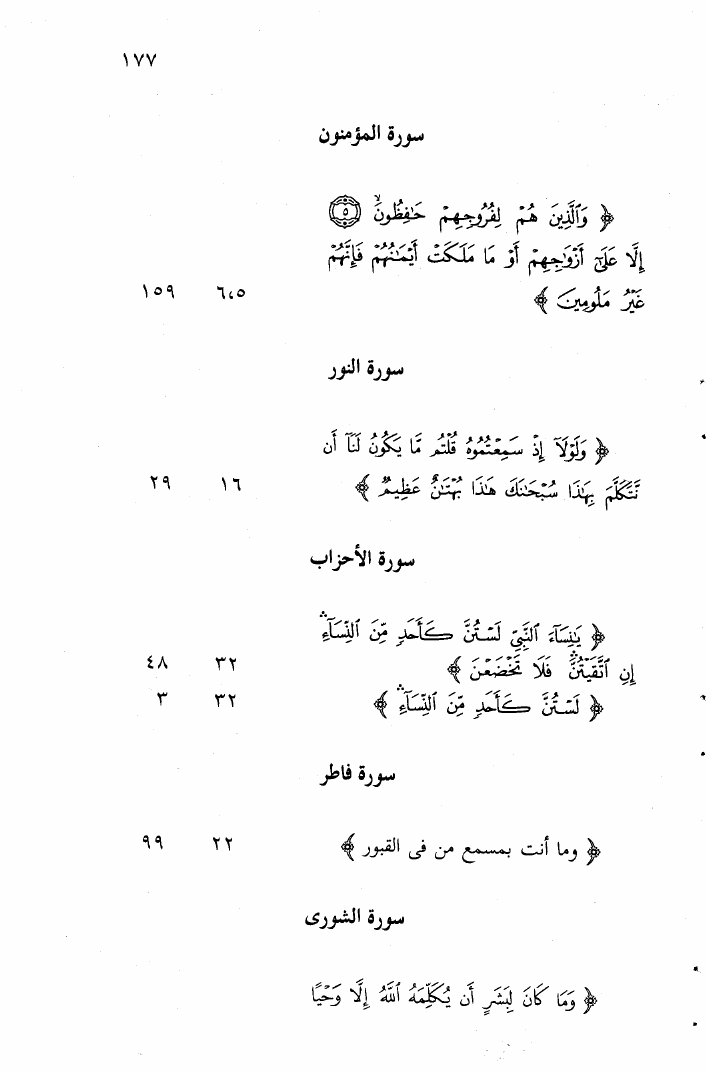 ١٧٧
سورة المؤمنون
﴿ وَٱلَّذِينَ هُمْ لِفُرُوجِهِمْ حَٰفِظُونَۙ ٥
إِلَّا عَلَىٰٓ أَزْوَٰجِهِمْ أَوْ مَا مَلَكَتْ أَيْمَٰنُهُمْ فَإِنَّهُمْ
غَيْرُ مَلُومِينَ ﴾ ٦،٥ ١٥٩
سورة النور
﴿ وَلَوْلَآ إِذْ سَمِعْتُمُوهُ قُلْتُم مَّا يَكُونُ لَنَآ أَن
نَّتَكَلَّمَ بِهَٰذَا سُبْحَٰنَكَ هَٰذَا بُهْتَٰنٌ عَظِيمٌ ﴾ ١٦ ٢٩
سورة الأحزاب
﴿ يَٰنِسَآءَ ٱلنَّبِيِّ لَسْتُنَّ كَأَحَدٍ مِّنَ ٱلنِّسَآءِۛ
إِنِ ٱتَّقَيْتُنَّۛ فَلَا تَخْضَعْنَ ﴾ ٣٢ ٤٨
﴿ لَسْتُنَّ كَأَحَدٍ مِّنَ ٱلنِّسَآءِۛ ﴾ ٣٢ ٣
سورة فاطر
﴿ وما أنت بمسمع من فى القبور ﴾ ٢٢ ٩٩
سورة الشورى
﴿ وَمَا كَانَ لِبَشَرٍ أَن يُكَلِّمَهُ ٱللَّهُ إِلَّا وَحْيًا